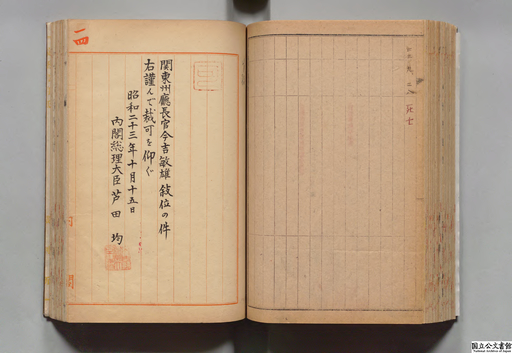 一四
関東州廳長官今吉敏雄敍位の件
右謹んで裁可を仰ぐ
昭和二十三年十月十五日
内閣総理大臣 芦田 均
国立公文書館
National Archives of Japan